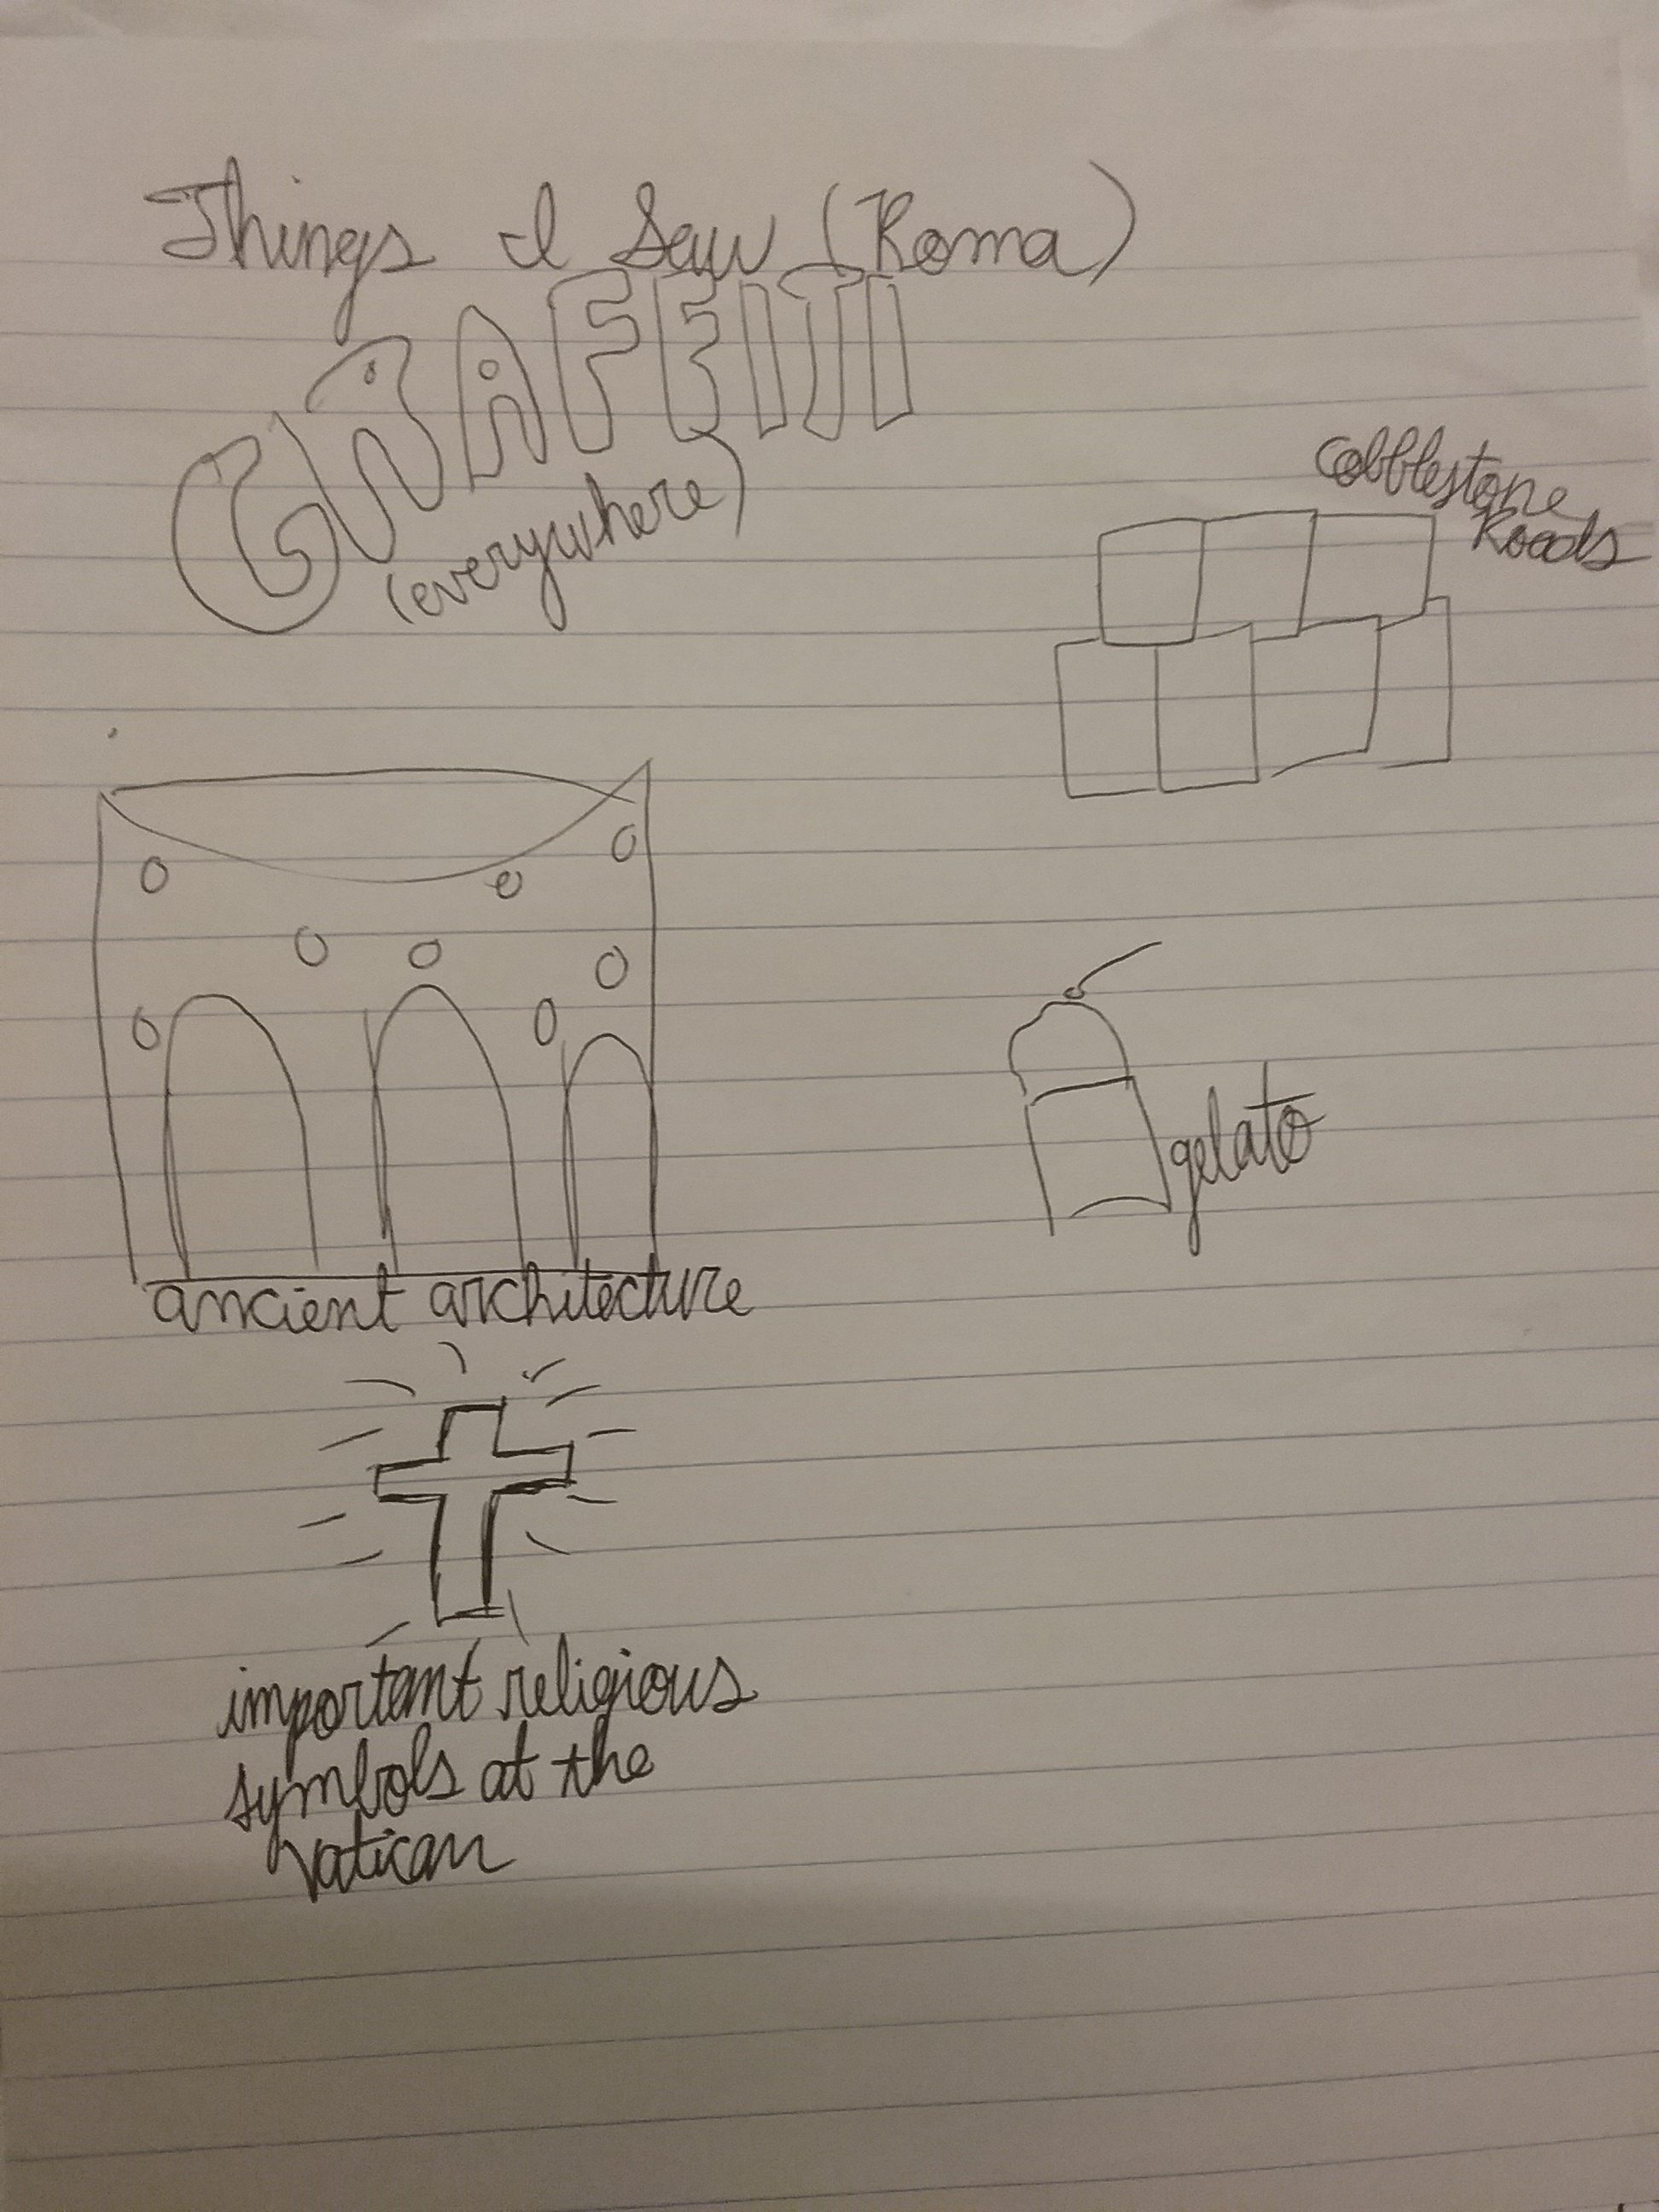 Things I Saw (Roma)
GRAFFITI
(everywhere)
Cobblestone
Roads
gelato
ancient architecture
important religious
symbols at the
Vatican